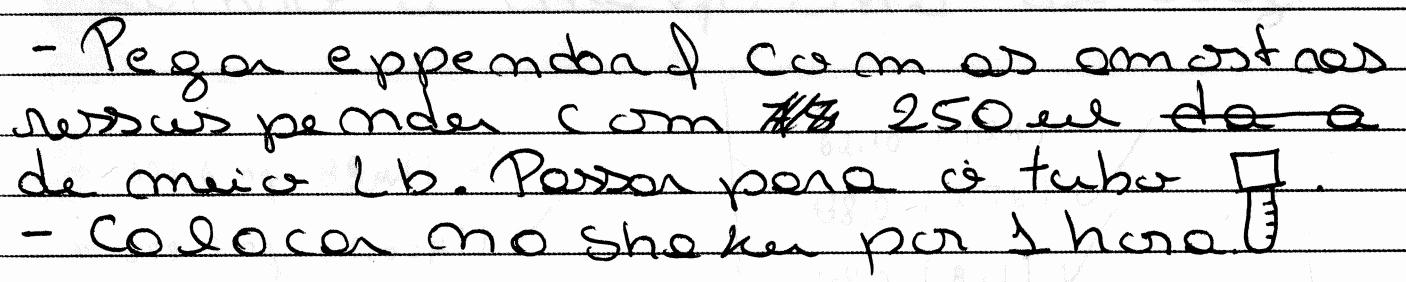 - Pegar eppendorf com as amostras
ressuspender com 250 ul da a
de meio Lb. Passar para o tubo .
- Colocar no shaker por 1 hora